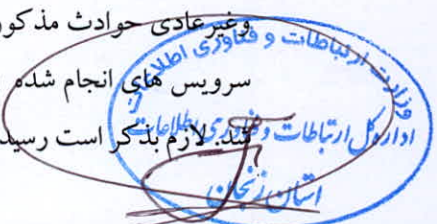 وغیرعادی حوادث مذکور
سرویس های انجام شده
شد. لازم بذکر است رسید
وزارت ارتباطات و فناوری اطلاعات
اداره کل ارتباطات و فناوری اطلاعات
استان زنجان